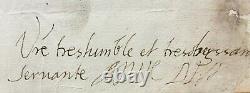 Vre treshumble et tresobeyssan
Servante Anne